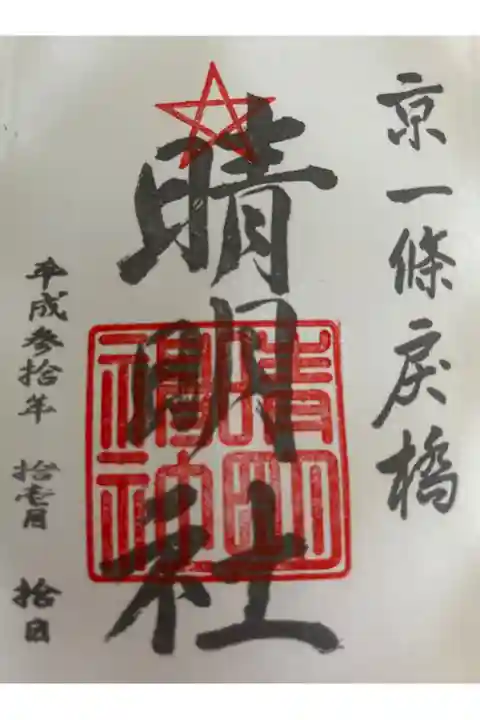 京一條戻橋
晴明社
晴明
神社
平成参拾年 拾壱月 拾日